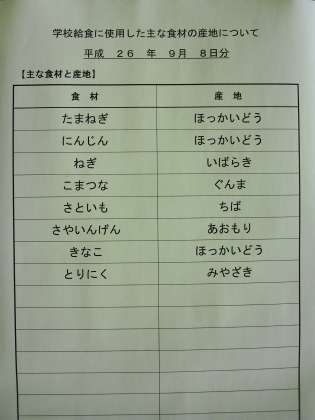 学校給食に使用した主な食材の産地について
平成 26 年 9月 8日分
【主な食材と産地】
食 材 産 地
たまねぎ ほっかいどう
にんじん ほっかいどう
ねぎ いばらき
こまつな ぐんま
さといも ちば
さやいんげん あおもり
きなこ ほっかいどう
とりにく みやざき